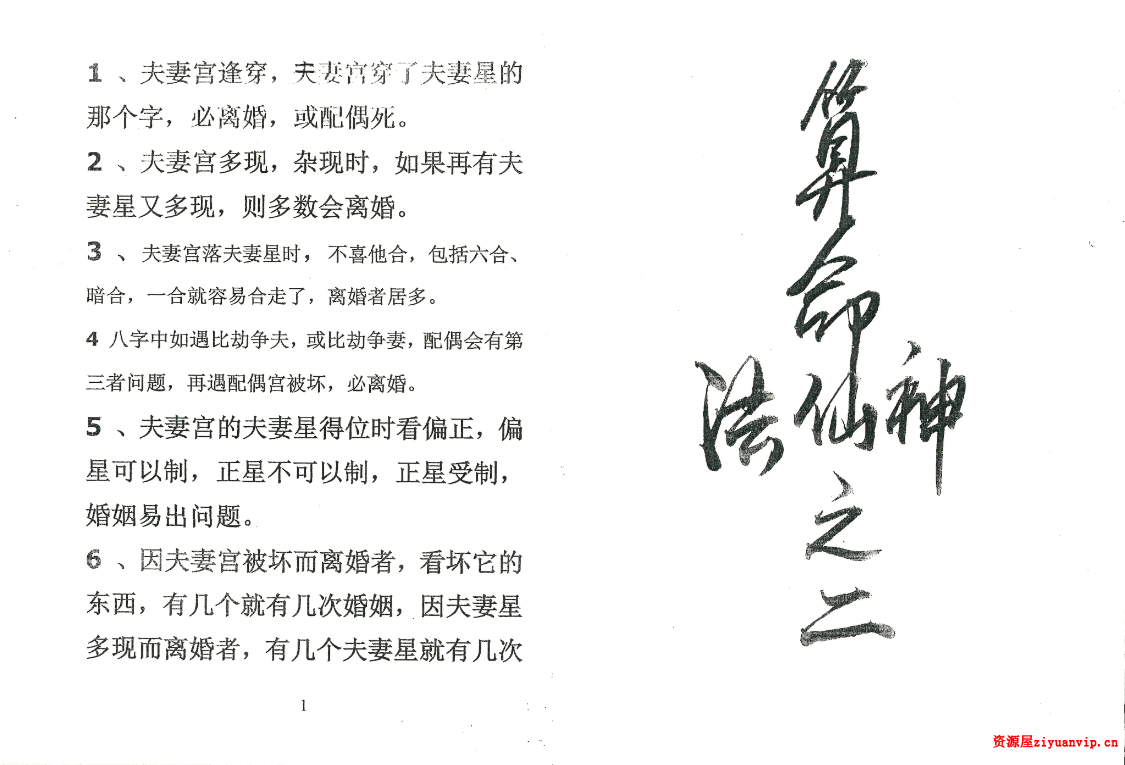 1 、夫妻宫逢穿，夫妻宫穿了夫妻星的
那个字，必离婚，或配偶死。
2 、夫妻宫多现，杂现时，如果再有夫
妻星又多现，则多数会离婚。
3 、夫妻宫落夫妻星时， 不喜他合，包括六合、
暗合，一合就容易合走了，离婚者居多。
4 八字中如遇比劫争夫，或比劫争妻，配偶会有第
三者问题，再遇配偶宫被坏，必离婚。
5 、夫妻宫的夫妻星得位时看偏正，偏
星可以制，正星不可以制，正星受制，
婚姻易出问题。
6 、因夫妻宫被坏而离婚者，看坏它的
东西，有几个就有几次婚姻，因夫妻星
多现而离婚者，有几个夫妻星就有几次
1
算
命
法仙神
之
二
资源屋ziyuanvip.cn